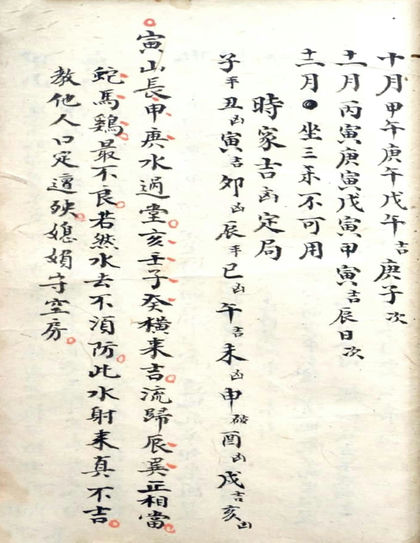 十月甲午庚午戊午吉庚子次
十一月丙寅庚寅戊寅甲寅吉辰日次
十二月坐三来不可用
時家吉凶定局
子平丑凶寅吉夘凶辰平巳凶午吉未凶申破酉凶戌吉亥凶
寅山長申庚水過堂亥壬子癸橫来吉流歸辰巽正相當
蛇馬鷄最不良若然水去不須防此水射来真不吉
教他人口定遭殃媳娟守空房